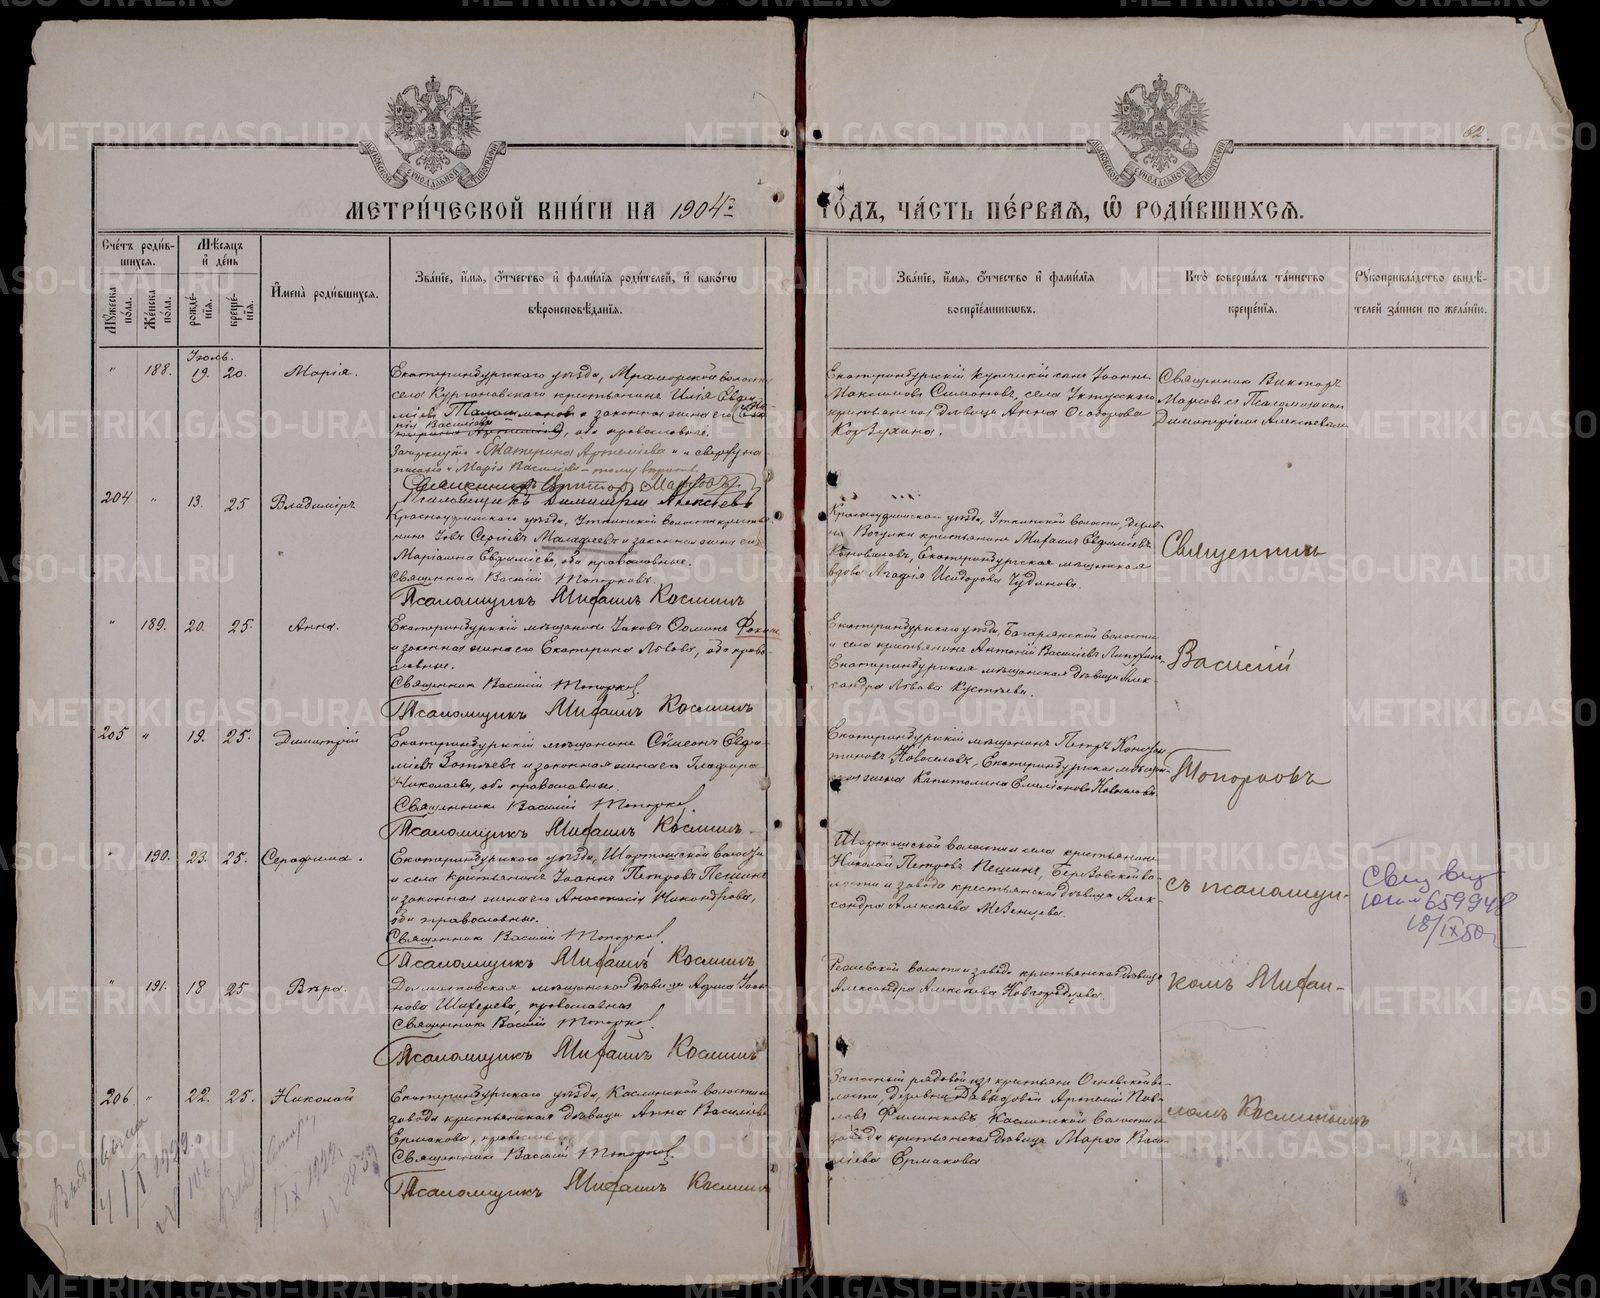 62
МЕТРИ́ЧЕСКОЙ КНИ́ГИ НА 1904й
ГО́ДЪ, ЧА́СТЬ ПЕ́РВАЯ, Ѡ РОДИ́ВШИХСЯ.
Сче́тъ роди́в-
шихся.
Мꙋ́жеска по́ла.
Же́нска по́ла.
Мѣ́сяцъ и де́нь
рожде́нїя.
креще́нїя.
И҆мена̀ роди́вшихся.
Зва́нїе, и҆́мя, ѻ҆́тчество и҆ фами́лїя роди́телей, и҆ како́гѡ
вѣроисповѣ́данїя.
Зва́нїе, и҆́мя, ѻ҆́тчество и҆ фами́лїя
воспрїе́мникѡвъ.
Кто̀ соверша́лъ та́инство
креще́нїя.
Рꙋкоприкла́дство свидѣ́-
телей за́писи по жела́нїю.
Іюль.
" 188. 19. 20. Марія.
Екатеринбургскаго уѣзда, Мраморской волости
села Кургановскаго крестьянинъ Илія Евѳи-
міевъ и законная жена его Ма-
рія Васильева, оба православные.
Зачеркнуто "Екатерина Артеміева" и сверху на-
писано "Марія Васильева" – тому вѣрить.
Священникъ Викторъ
Псаломщикъ Димитрій Алексѣевъ
Екатеринбургскій купеческій сынъ Іоаннъ
Максимовъ Симановъ, села Уктусскаго
крестьянская дѣвица Анна Ѳеодорова
Козлухина.
Священникъ Викторъ
съ Псаломщикомъ
Димитріемъ Алексѣевымъ
204 " 13. 25 Владиміръ
Красноуфимскаго уѣзда, Уткинской волости крестья-
нинъ Іовъ Сергіевъ Малафеевъ и законная жена его
Маріанна Евѳиміева, оба православные.
Священникъ Василій Топорковъ.
Псаломщикъ Михаилъ Косминъ
Красноуфимскаго уѣзда, Уткинской волости, дерев-
ни крестьянинъ Михаилъ Евѳиміевъ
Коноваловъ, Екатеринбургская мѣщанская
вдова Агафія Исидорова Чудинова.
Священникъ
" 189. 20. 25. Анна.
Екатеринбургскій мѣщанинъ Іаковъ Ѳоминъ Фокинъ
и законная жена его Екатерина Львова, оба право-
славные.
Священникъ Василій Топорков.
Псаломщикъ Михаилъ Косминъ
Екатеринбургскаго уѣзда, Багарякской волости
и села крестьянинъ Антоній Васильевъ
Екатеринбургская мѣщанская дѣвица Алек-
сандра Львова
Василій
205 " 19. 25. Димитрій
Екатеринбургскій мѣщанинъ Сѵмеонъ Евѳи-
міевъ Зотѣевъ и законная жена его Глафира
Николаева, оба православные.
Священникъ Василій Топорков.
Псаломщикъ Михаилъ Косминъ.
Екатеринбургскій мѣщанинъ Петръ
Новоселовъ, Екатеринбургская мѣщан-
ская жена Капитолина Емиліанова Новоселова.
Топорковъ
" 190. 23. 25. Серафима.
Екатеринбургскаго уѣзда, Шарташской волости
и села крестьянинъ Іоаннъ Петровъ Пешинъ
и законная жена его Анастасія Никандрова,
оба православные.
Священникъ Василій Топорков.
Псаломщикъ Михаилъ Косминъ
Шарташской волости и села крестьянинъ
Николай Петровъ Пешинъ, Березовской во-
лости и завода крестьянская дѣвица Алек-
сандра Алексѣева Мезенцева.
съ псаломщи-
659948
18/IX 50
" 191. 18 25 Вѣра.
Долматовская мѣщанская дѣвица Іоан-
нова православная
Священникъ Василій Топорков.
Псаломщикъ Михаилъ Косминъ
Режевской волости и завода крестьянская дѣвица
Александра Алексѣева Новгородцева.
комъ Михаи-
206 " 22. 25. Николай
Екатеринбургскаго уѣзда, Каслинской волости и
завода крестьянская дѣвица Анна Васильева
Ермакова, православная
Священникъ Василій Топорков.
Псаломщикъ Михаилъ Космин
Запасный рядовой изъ крестьянъ Огневской во-
лости, деревни Давыдовой Артемій Пав-
ловъ Каслинской волости и
завода крестьянская дѣвица Марѳа Васи-
ліева Ермакова
ломъ Косминымъ
METRIKI.GASO-URAL.RU